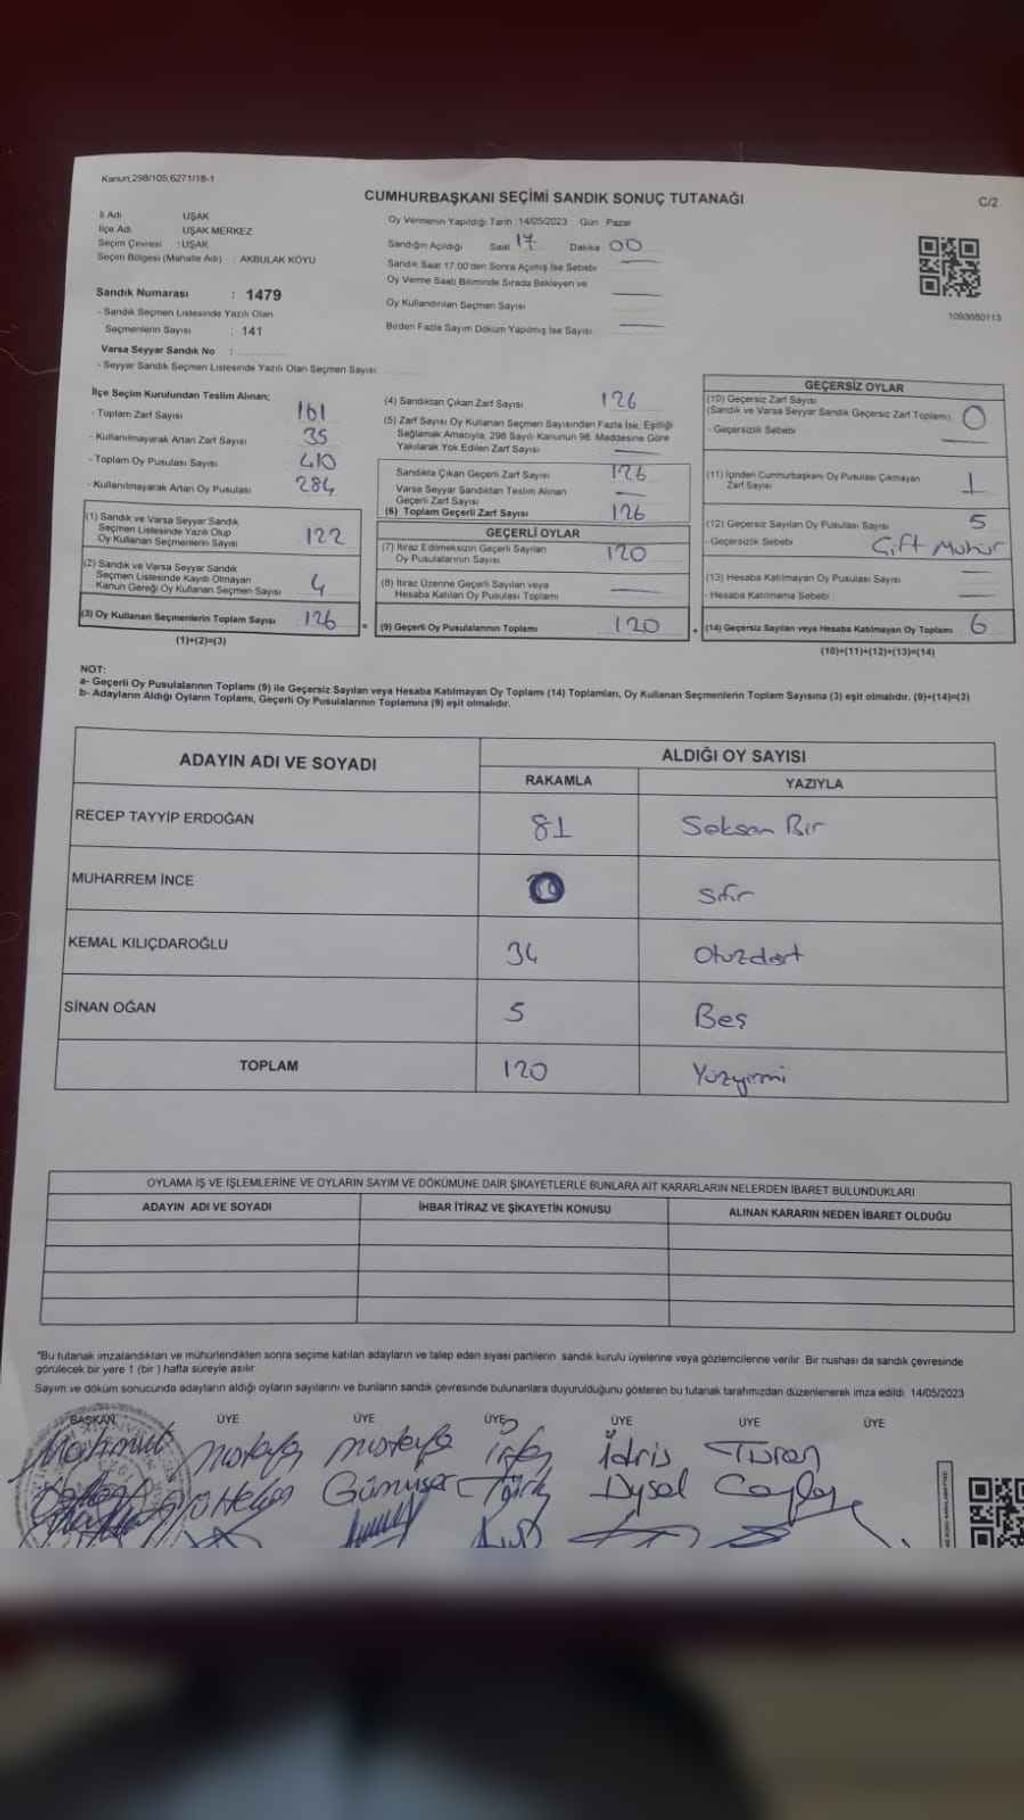 Kanun:298/105;6271/18-1
CUMHURBAŞKANI SEÇİMİ SANDIK SONUÇ TUTANAĞI
C/2
İl Adı UŞAK
İlçe Adı UŞAK MERKEZ
Seçim Çevresi : UŞAK
Seçim Bölgesi (Mahalle Adı) : AKBULAK KÖYÜ
Oy Vermenin Yapıldığı Tarih :14/05/2023 Gün Pazar
Sandığın Açıldığı Saat 17 Dakika 00
Sandık Saat 17:00'den Sonra Açılmış İse Sebebi
Oy Verme Saati Bitiminde Sırada Bekleyen ve
Oy Kullandırılan Seçmen Sayısı
Birden Fazla Sayım Döküm Yapılmış İse Sayısı
Sandık Numarası : 1479
- Sandık Seçmen Listesinde Yazılı Olan
Seçmenlerin Sayısı : 141
Varsa Seyyar Sandık No :
- Seyyar Sandık Seçmen Listesinde Yazılı Olan Seçmen Sayısı
İlçe Seçim Kurulundan Teslim Alınan;
- Toplam Zarf Sayısı 161
- Kullanılmayarak Artan Zarf Sayısı 35
- Toplam Oy Pusulası Sayısı 410
- Kullanılmayarak Artan Oy Pusulası 284
(1) Sandık ve Varsa Seyyar Sandık
Seçmen Listesinde Yazılı Olup
Oy Kullanan Seçmenlerin Sayısı 122
(2) Sandık ve Varsa Seyyar Sandık
Seçmen Listesinde Kayıtlı Olmayan
Kanun Gereği Oy Kullanan Seçmen Sayısı 4
(3) Oy Kullanan Seçmenlerin Toplam Sayısı 126
(1)+(2)=(3)
=
(4) Sandıktan Çıkan Zarf Sayısı 126
(5) Zarf Sayısı Oy Kullanan Seçmen Sayısından Fazla İse, Eşitliği
Sağlamak Amacıyla, 298 Sayılı Kanunun 98. Maddesine Göre
Yakılarak Yok Edilen Zarf Sayısı
Sandıkta Çıkan Geçerli Zarf Sayısı 126
Varsa Seyyar Sandıktan Teslim Alınan
Geçerli Zarf Sayısı
(6) Toplam Geçerli Zarf Sayısı 126
GEÇERLİ OYLAR
(7) İtiraz Edilmeksizin Geçerli Sayılan
Oy Pusulalarının Sayısı 120
(8) İtiraz Üzerine Geçerli Sayılan veya
Hesaba Katılan Oy Pusulası Toplamı
(9) Geçerli Oy Pusulalarının Toplamı 120
+
GEÇERSİZ OYLAR
(10) Geçersiz Zarf Sayısı
(Sandık ve Varsa Seyyar Sandık Geçersiz Zarf Toplamı) 0
- Geçersizlik Sebebi
(11) İçinden Cumhurbaşkanı Oy Pusulası Çıkmayan
Zarf Sayısı 1
(12) Geçersiz Sayılan Oy Pusulası Sayısı 5
- Geçersizlik Sebebi Çift Mühür
(13) Hesaba Katılmayan Oy Pusulası Sayısı
- Hesaba Katılmama Sebebi :
(14) Geçersiz Sayılan veya Hesaba Katılmayan Oy Toplamı 6
(10)+(11)+(12)+(13)=(14)
NOT:
a- Geçerli Oy Pusulalarının Toplamı (9) ile Geçersiz Sayılan veya Hesaba Katılmayan Oy Toplamı (14) Toplamları, Oy Kullanan Seçmenlerin Toplam Sayısına (3) eşit olmalıdır. (9)+(14)=(3)
b- Adayların Aldığı Oyların Toplamı, Geçerli Oy Pusulalarının Toplamına (9) eşit olmalıdır.
ADAYIN ADI VE SOYADI ALDIĞI OY SAYISI
RAKAMLA YAZIYLA
RECEP TAYYİP ERDOĞAN 81 Seksen Bir
MUHARREM İNCE 0 Sıfır
KEMAL KILIÇDAROĞLU 34 Otuzdört
SİNAN OĞAN 5 Beş
TOPLAM 120 Yüzyirmi
OYLAMA İŞ VE İŞLEMLERİNE VE OYLARIN SAYIM VE DÖKÜMÜNE DAİR ŞİKAYETLERLE BUNLARA AİT KARARLARIN NELERDEN İBARET BULUNDUKLARI
ADAYIN ADI VE SOYADI İHBAR İTİRAZ VE ŞİKAYETİN KONUSU ALINAN KARARIN NEDEN İBARET OLDUĞU
"Bu tutanak imzalandıktan ve mühürlendikten sonra seçime katılan adayların ve talep eden siyasi partilerin sandık kurulu üyelerine veya gözlemcilerine verilir. Bir nushası da sandık çevresinde
görülecek bir yere 1 (bir ) hafta süreyle asılır.
Sayım ve döküm sonucunda adayların aldığı oyların sayılarını ve bunların sandık çevresinde bulunanlara duyurulduğunu gösteren bu tutanak tarafımızdan düzenlenerek imza edildi. 14/05/2023
BAŞKAN ÜYE ÜYE ÜYE ÜYE ÜYE ÜYE
Mahmut Mustafa Mustafa İrfan İdris Turan
Gümüşer Türk Dysel